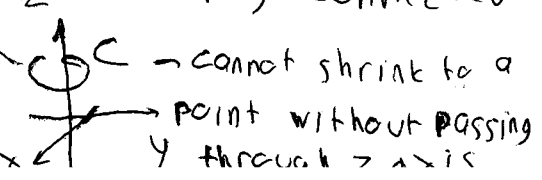 C → cannot shrink to a
point without passing
y through z axis
x